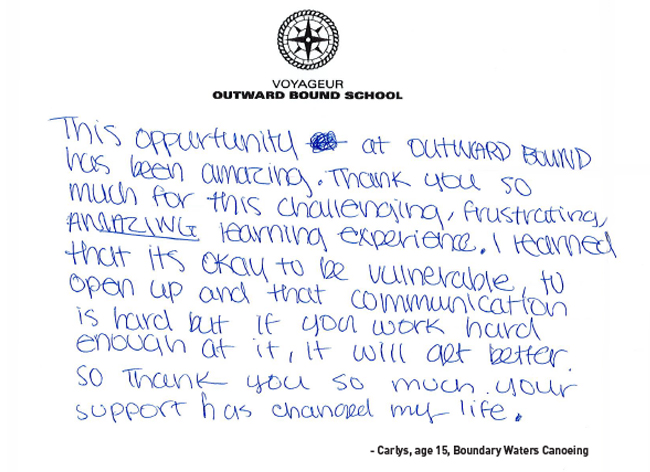 VOYAGEUR
OUTWARD BOUND SCHOOL
This oppurtunity at OUTWARD BOUND
has been amazing. Thank you so
much for this challenging, frustrating,
AMAZING learning experience. I learned
that its okay to be vulnerable, to
open up and that communication
is hard but if you work hard
enough at it, it will get better.
SO Thank you so much. your
support has changed my life.
- Carlys, age 15, Boundary Waters Canoeing